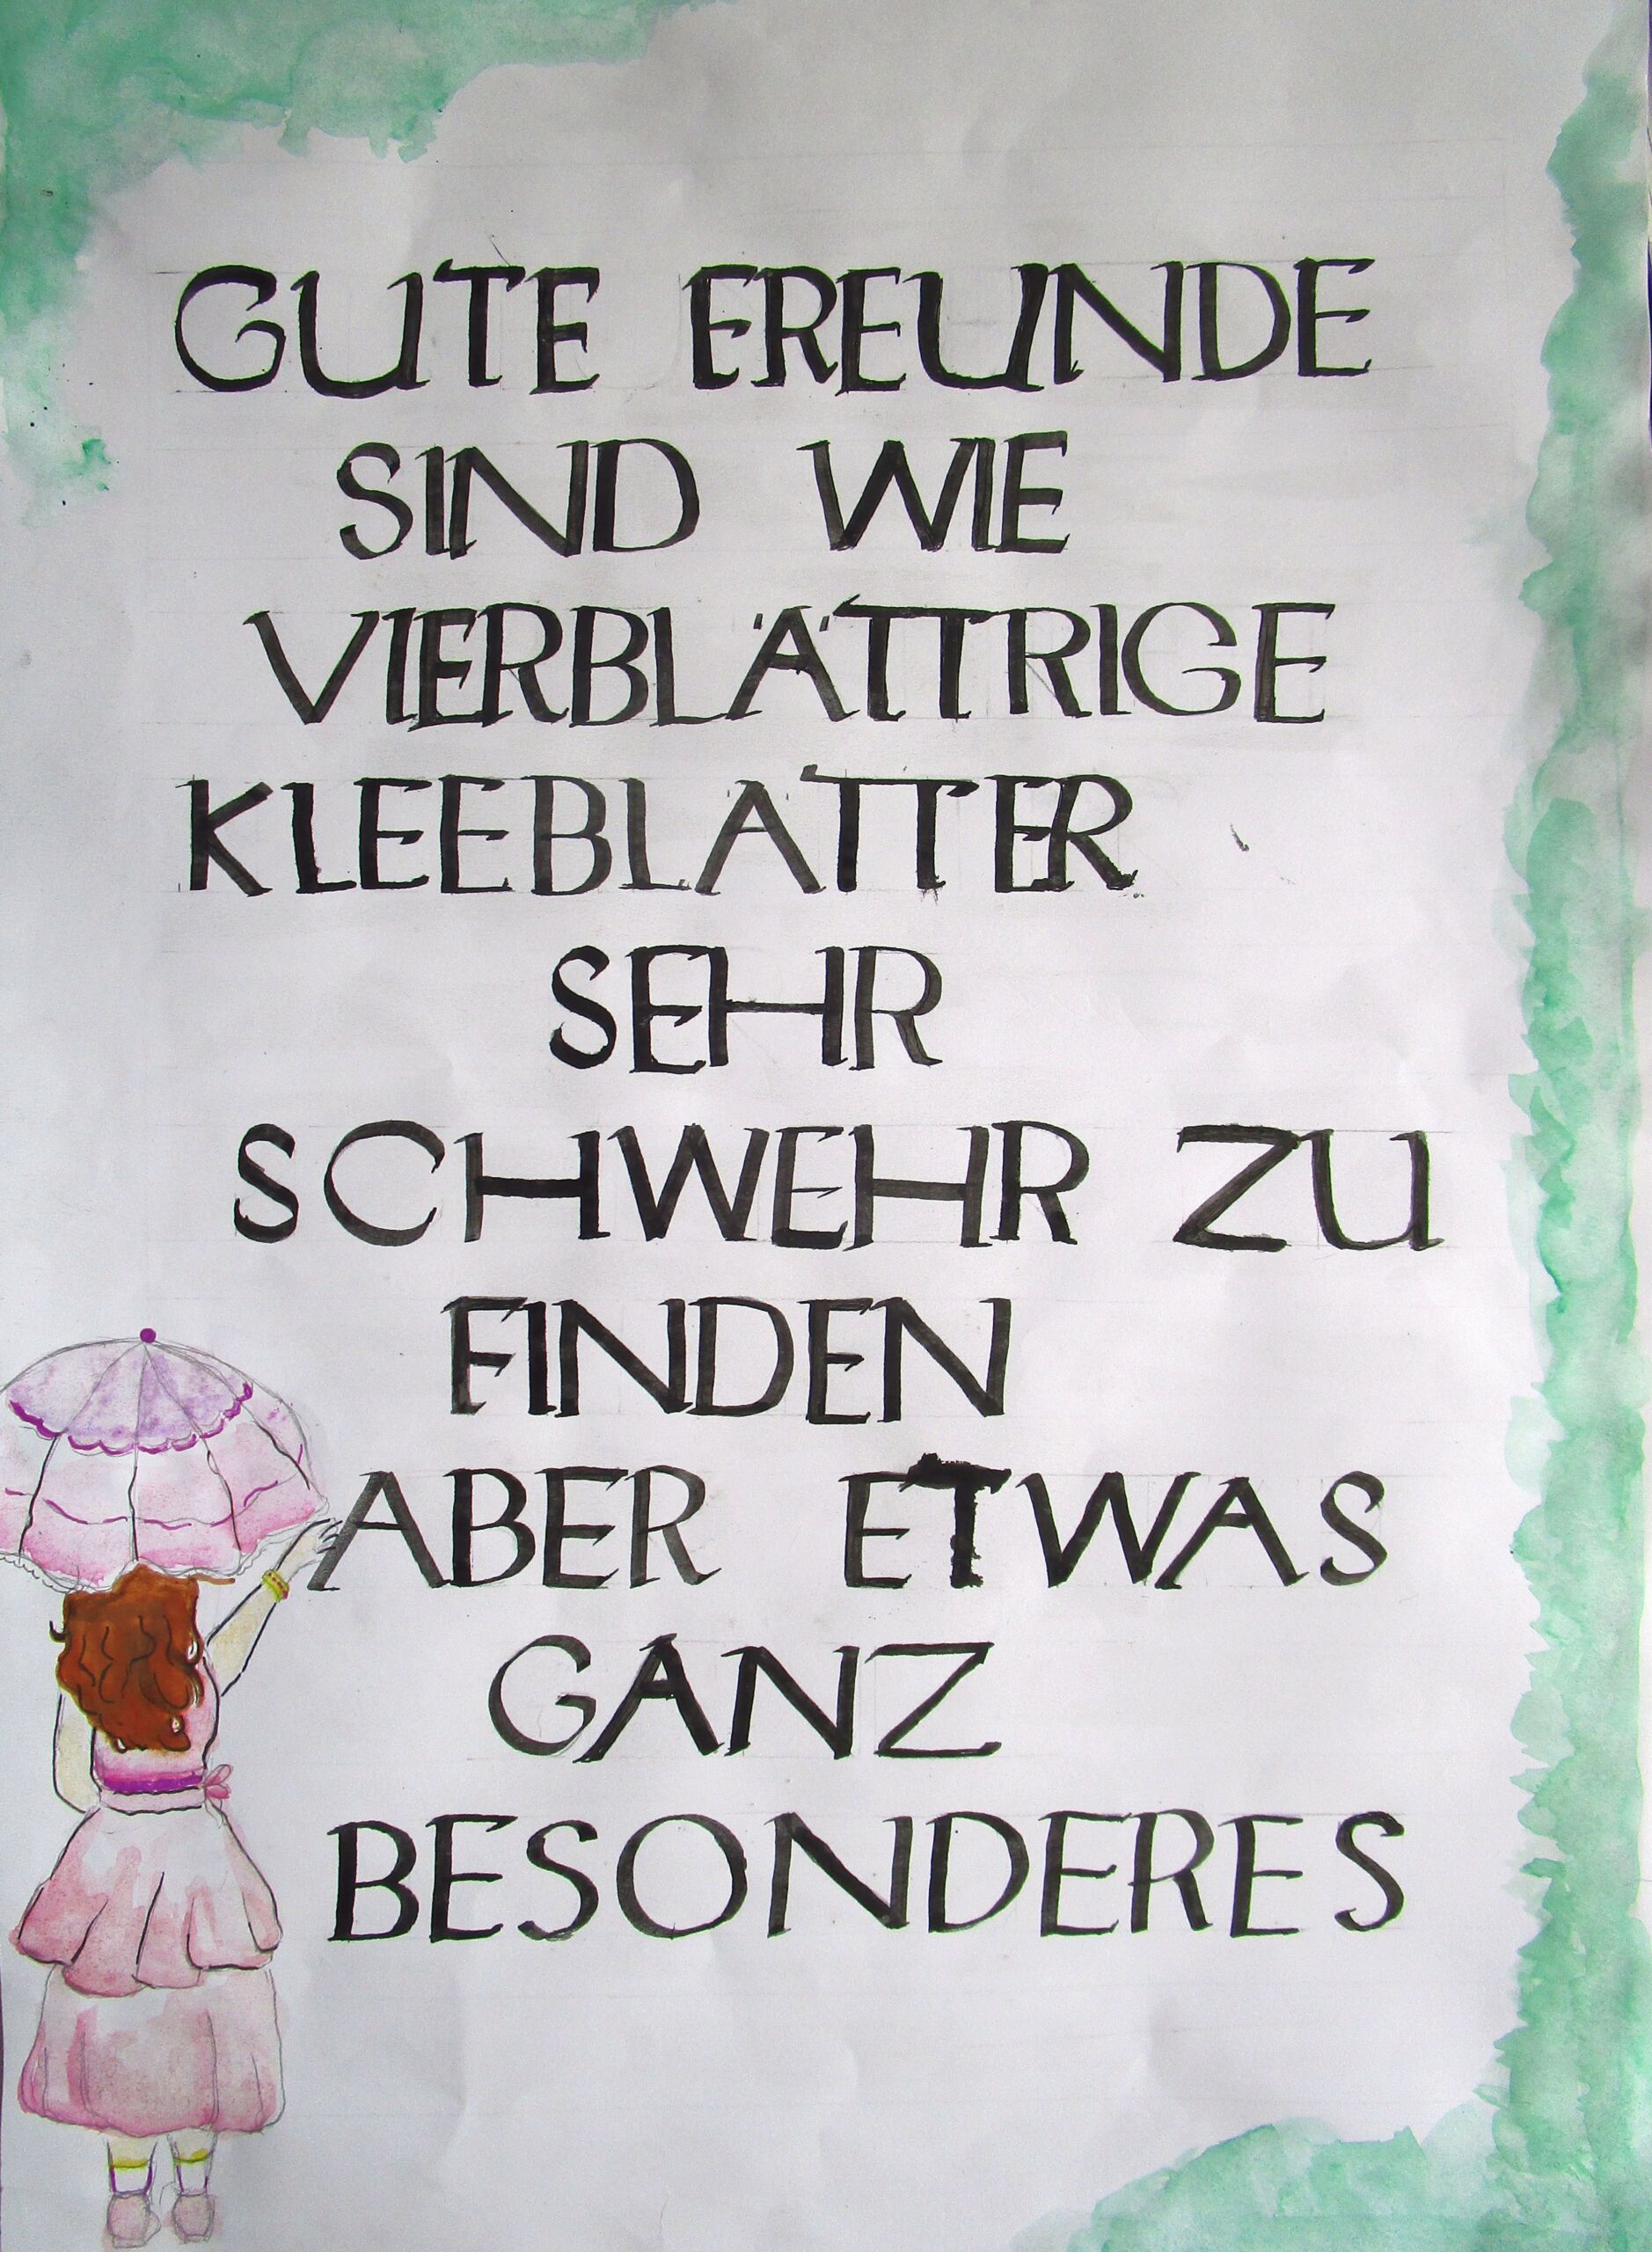 GUTE FREUNDE
SIND WIE
VIERBLÄTTRIGE
KLEEBLÄTTER
SEHR
SCHWEHR ZU
FINDEN
ABER ETWAS
GANZ
BESONDERES